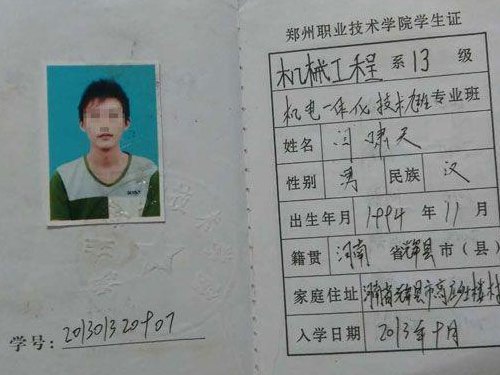 郑州职业技术学院学生证
机械工程 系 13 级
机电一体化技术 专业 班
姓名 闫啸天
性别 男 民族 汉
出生年月 1994 年 11 月
籍贯 河南 省 辉县 市(县)
家庭住址 河南省辉县市高庄乡楼村
入学日期 2013年9月
学号: 201301320907